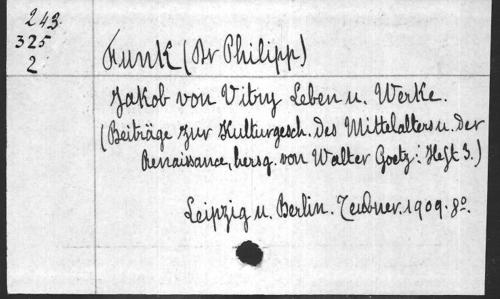 243
325
2
Funk (Dr Philipp)
Jakob von Vitry Leben u. Werke.
(Beiträge zur Kulturgesch. des Mittelalters u. der
Renaissance, hersg. von Walter Goetz: Heft 3.)
Leipzig u. Berlin. Teubner. 1909. 8o.